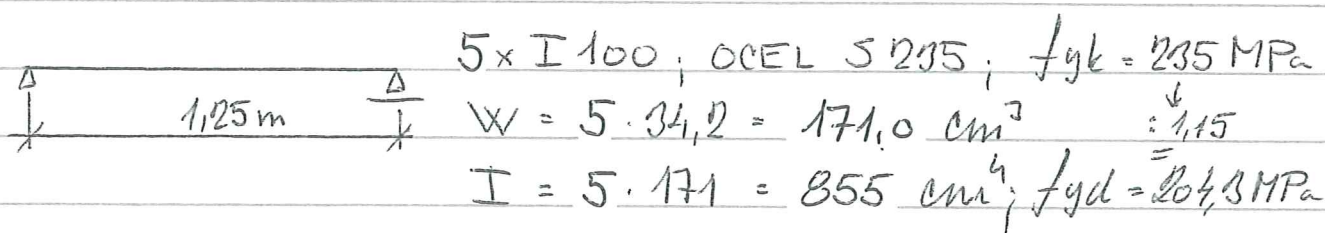 5x I 100; OCEL S 235; fyk = 235 MPa
1,25 m
W = 5 · 34,2 = 171,0 cm³ : 1,15
I = 5 · 171 = 855 cm⁴; fyd = 204,3 MPa